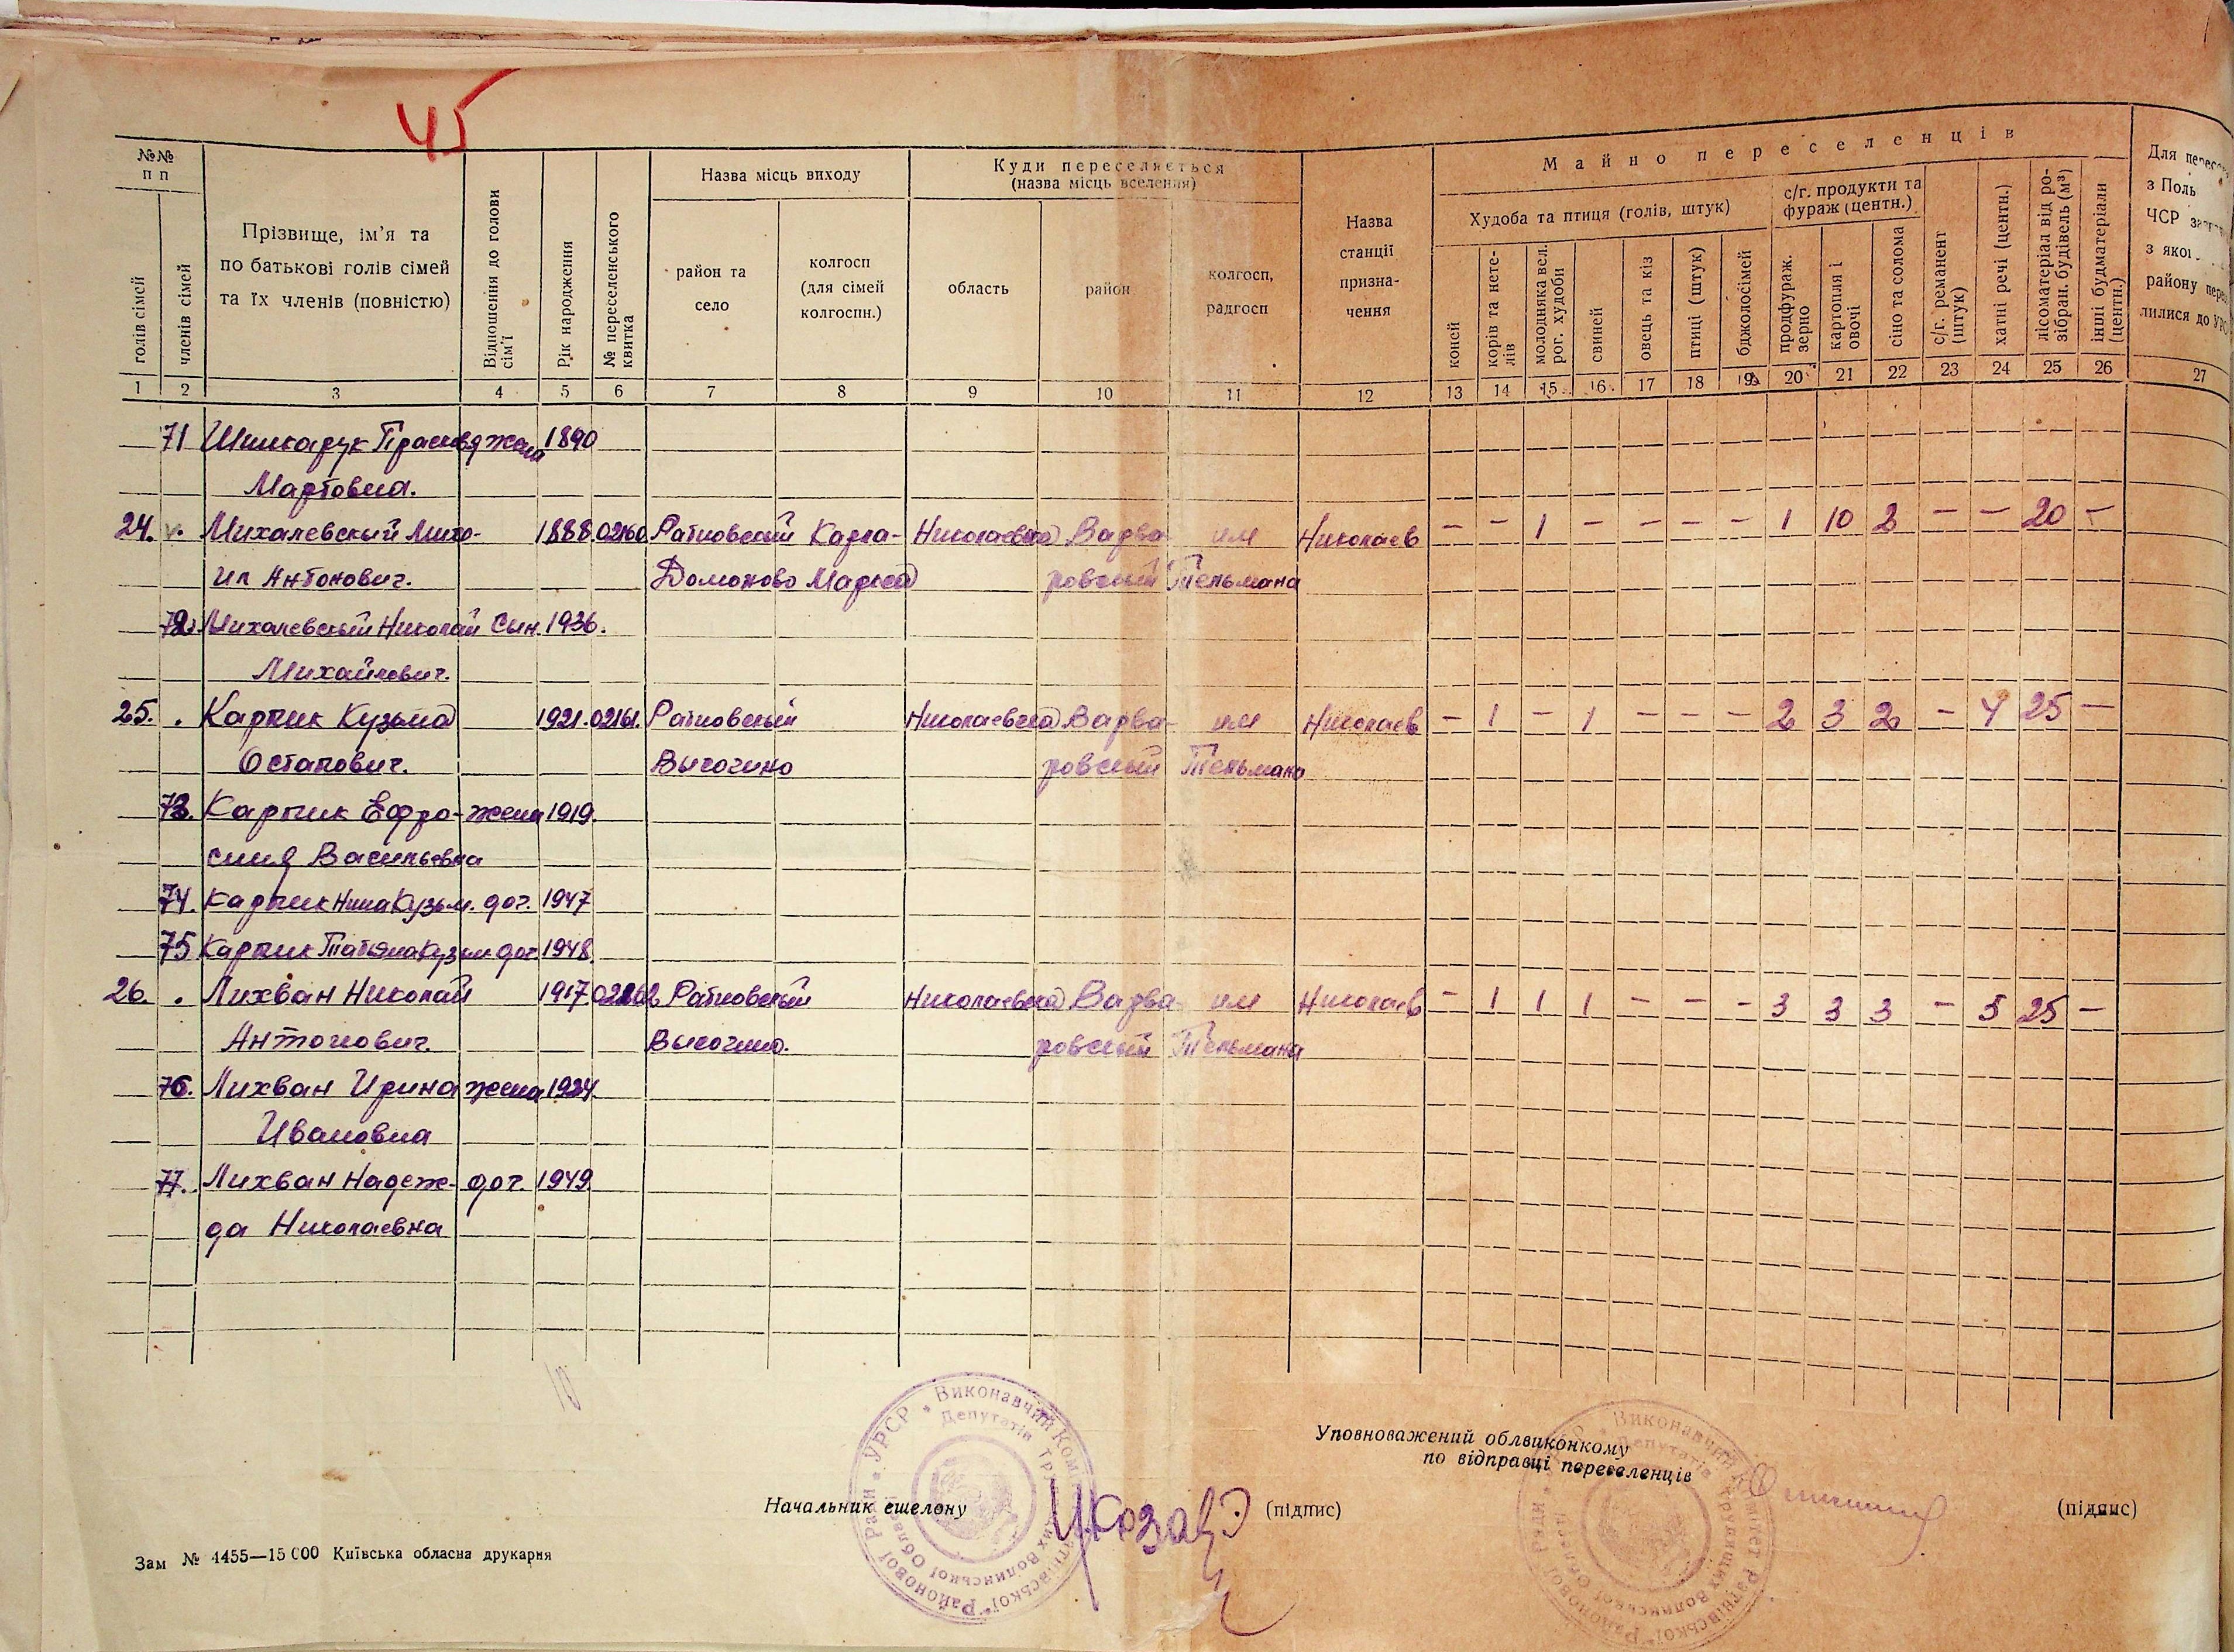 45
№№ п п
Прізвище, ім'я та по батькові голів сімей та їх членів (повністю)
Відношення до голови сім'ї
Рік народження
№ переселенського квитка
Назва місць виходу
Куди переселяється (назва місць вселення)
Назва станції призначення
Майно переселенців
Худоба та птиця (голів, штук)
с/г. продукти та фураж (центн.)
голів сімей
членів сімей
район та село
колгосп (для сімей колгоспн.)
область
район
колгосп, радгосп
коней
корів та нетелів
молодняка вел. рог. худоби
свиней
овець та кіз
птиці (штук)
бджолосімей
продфураж. зерно
картопля і овочі
сіно та солома
с/г. реманент (штук)
хатні речі (центн.)
лісоматеріал від розібран. будівель (м³)
інші будматеріали (центн.)
Для
з Поль
ЧСР
з якої
району
лилися до
1 2 3 4 5 6 7 8 9 10 11 12 13 14 15 16 17 18 19 20 21 22 23 24 25 26 27
71 Шинкарук Прасковя жена 1890
Мартовна.
24. Михалевский Миха- 1888 02160 Ратновский Карла- Николаевска Варва- им Николаев – – 1 – – – – 1 10 2 – – 20 –
ил Антонович. Домоново Маркса ровский Тельмана
72. Михалевский Николай сын 1936.
Михайлович.
25. Карпик Кузьма 1921. 02161. Ратновский Николаевска Варва- им Николаев – 1 – 1 – – – 2 3 2 – 4 25 –
Остапович. Высочино ровский Тельмана
73. Карпик Ефро- жена 1919.
синя Васильевна
74. Карпик Нина Кузьм. доч. 1947
75 Карпик Татьяна Кузьм доч. 1948.
26. Лихван Николай 1917 02162 Ратновский Николаевска Варва- им Николаев – 1 1 1 – – – 3 3 3 – 5 25 –
Антонович. Высочино. ровский Тельмана
76. Лихван Ирина жена 1924.
Ивановна
77. Лихван Надеж- доч. 1949.
да Николаевна
Уповноважений облвиконкому
по відправці переселенців
Начальник ешелону (підпис) (підпис)
Зам № 4455—15 000 Київська обласна друкарня